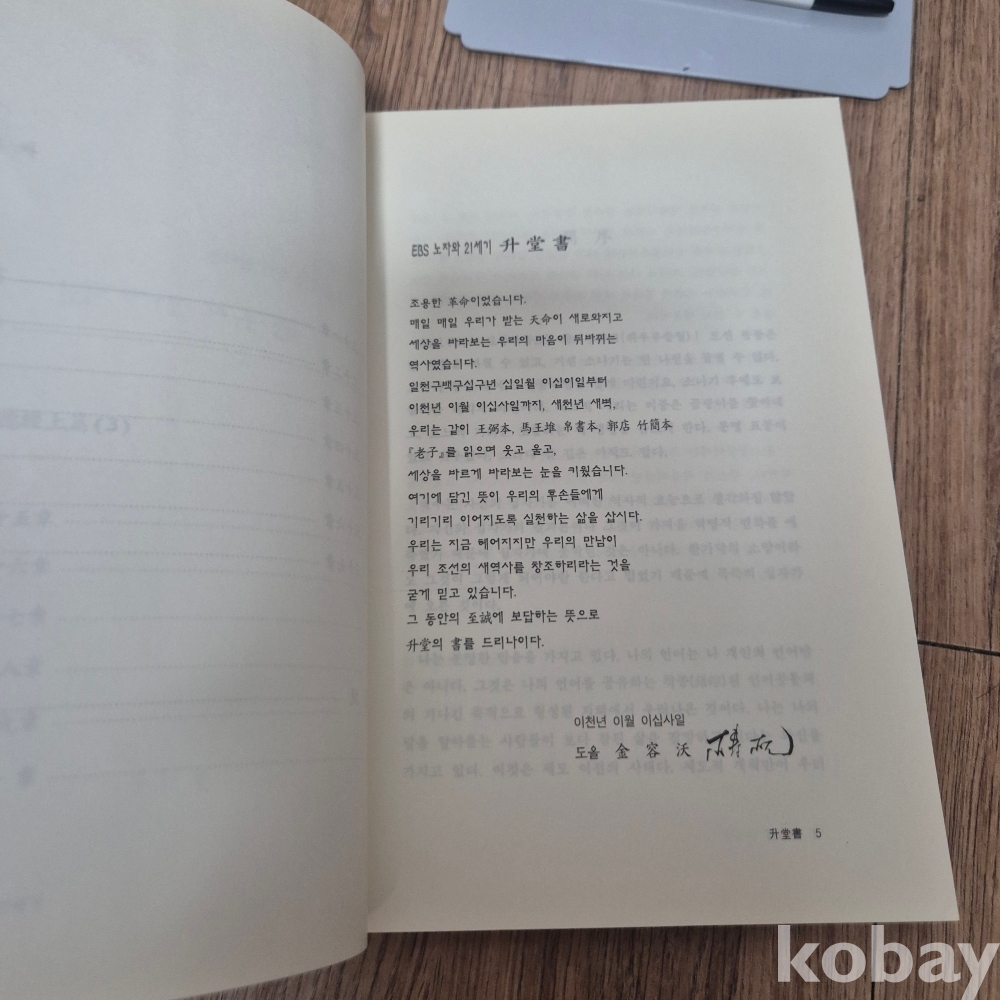 EBS 노자와 21세기 升堂書
조용한 革命이었습니다.
매일 매일 우리가 받는 天命이 새로와지고
세상을 바라보는 우리의 마음이 뒤바뀌는
역사였습니다.
일천구백구십구년 십일월 이십이일부터
이천년 이월 이십사일까지, 새천년 새벽,
우리는 같이 王弼本, 馬王堆 帛書本, 郭店 竹簡本
『老子』를 읽으며 웃고 울고,
세상을 바르게 바라보는 눈을 키웠습니다.
여기에 담긴 뜻이 우리의 후손들에게
기리기리 이어지도록 실천하는 삶을 삽시다.
우리는 지금 헤어지지만 우리의 만남이
우리 조선의 새역사를 창조하리라는 것을
굳게 믿고 있습니다.
그 동안의 至誠에 보답하는 뜻으로
升堂의 書를 드리나이다.
이천년 이월 이십사일
도올 金容沃
升堂書 5
kobay